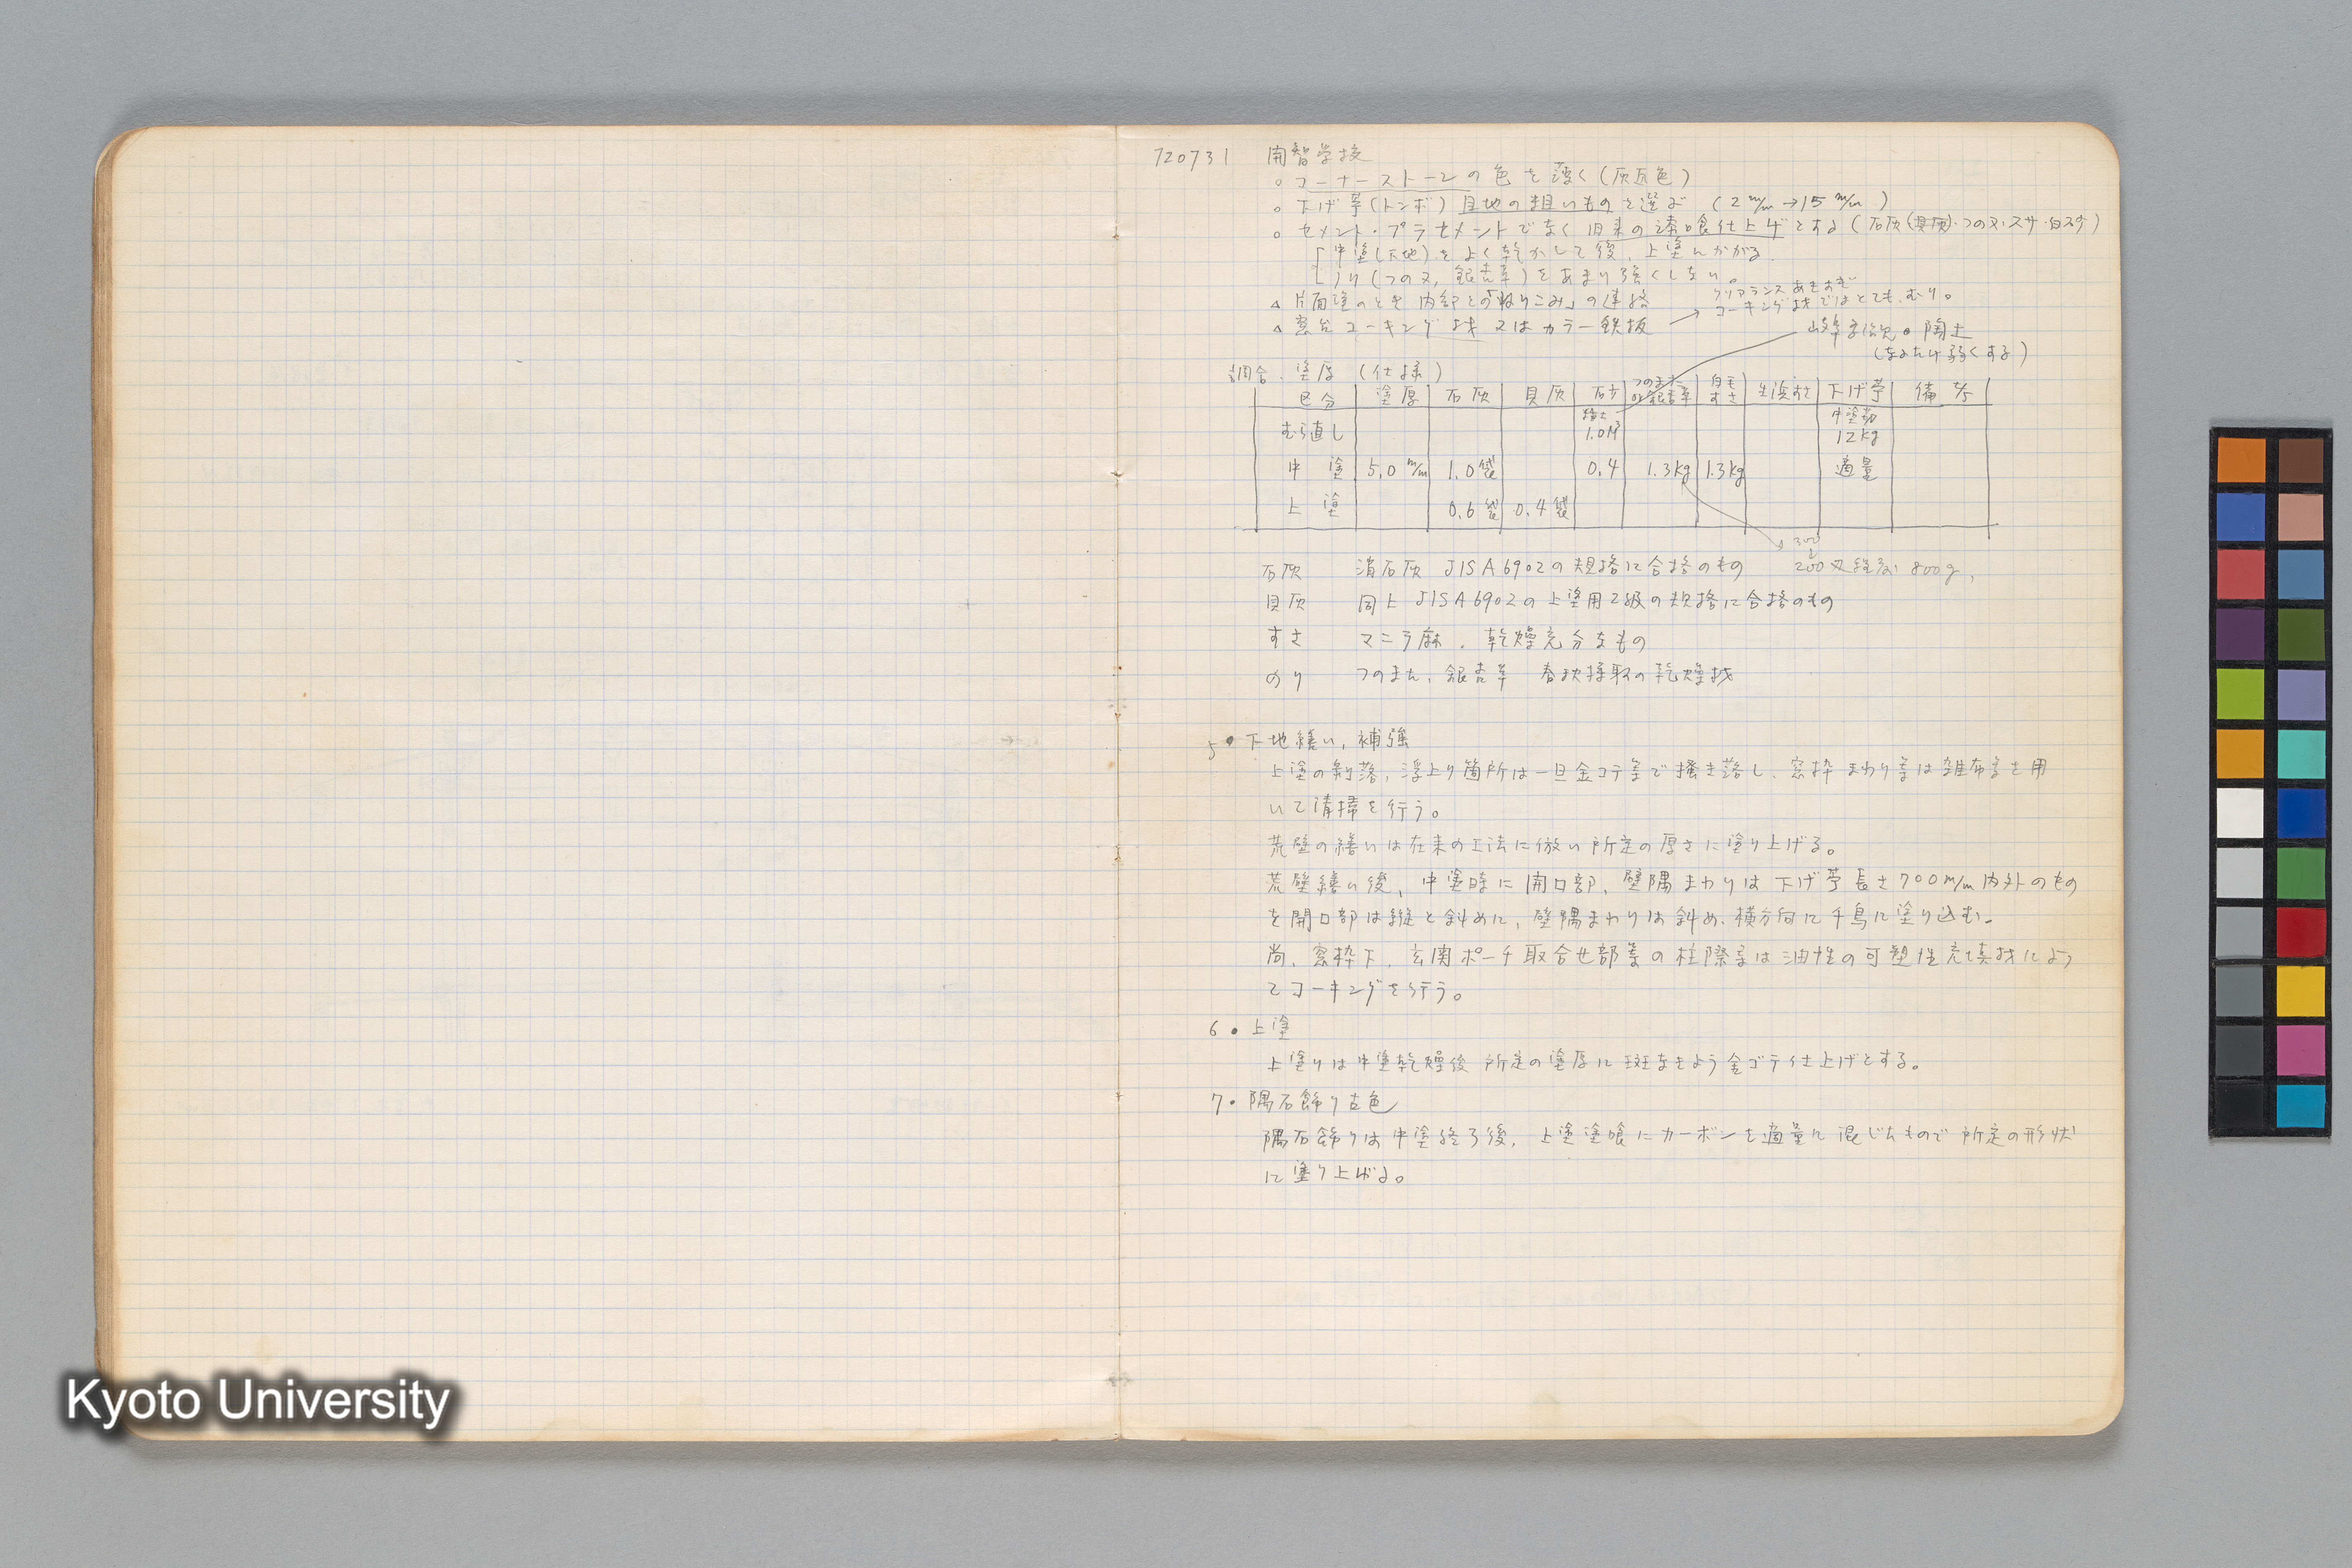 720731 開智学校
○ コーナーストーンの色を薄く(灰白色)
○ 下げ苧(トンボ) 目地の粗いものを選ぶ (2m/m→15m/m)
○ セメント・プラセメントでなく旧来の漆喰仕上げとする(石灰(貝灰)・つの又・スサ・白スサ)
「中塗(下地)をよく乾かして後、上塗にかかる
のり(つの又、銀杏草)をあまり強くしない。
△ 片面塗のとき内部との「ねりこみ」の連絡
クリアランスあきすぎ
コーキング材ではとてもむり。
△ 窓台コーキング材又はカラー鉄板 →
岐阜 陶土
(なるたけ弱くする)
調合、塗厚 (仕様)
区分 塗厚 石灰 貝灰 砂 つのまた又は銀杏草 白毛すさ 生浜すさ 下げ苧 備考
むら直し 1.0M³ 中塗初 12kg
中塗 5.0m/m 1.0袋 0.4 1.3kg 1.3kg 適量
上塗 0.6袋 0.4袋
300
200 800g
石灰 消石灰 JISA6902の規格に合格のもの
貝灰 同上 JISA6902の上塗用2級の規格に合格のもの
すさ マニラ麻、乾燥充分なもの
のり つのまた、銀杏草 春秋採取の乾燥材
5・下地繕い、補強
上塗の剥落、浮上り箇所は一旦金コテ等で掻き落し、窓枠まわり等は雑布等を用
いて清掃を行う。
荒壁の繕いは在来の工法に倣い所定の厚さに塗り上げる。
荒壁繕い後、中塗時に開口部、壁隅まわりは下げ苧長さ700m/m内外のもの
を開口部は縦と斜めに、壁隅まわりは斜め、横方向に千鳥に塗り込む。
尚、窓枠下、玄関ポーチ取合せ部等の柱際等は油性の可塑性充填材によっ
てコーキングを行う。
6・上塗
上塗りは中塗乾燥後所定の塗厚に斑なきよう金ゴテ仕上げとする。
7・隅石飾り古色
隅石飾りは中塗終了後、上塗塗喰にカーボンを適量に混じたもので所定の形状
に塗り上げる。
Kyoto University